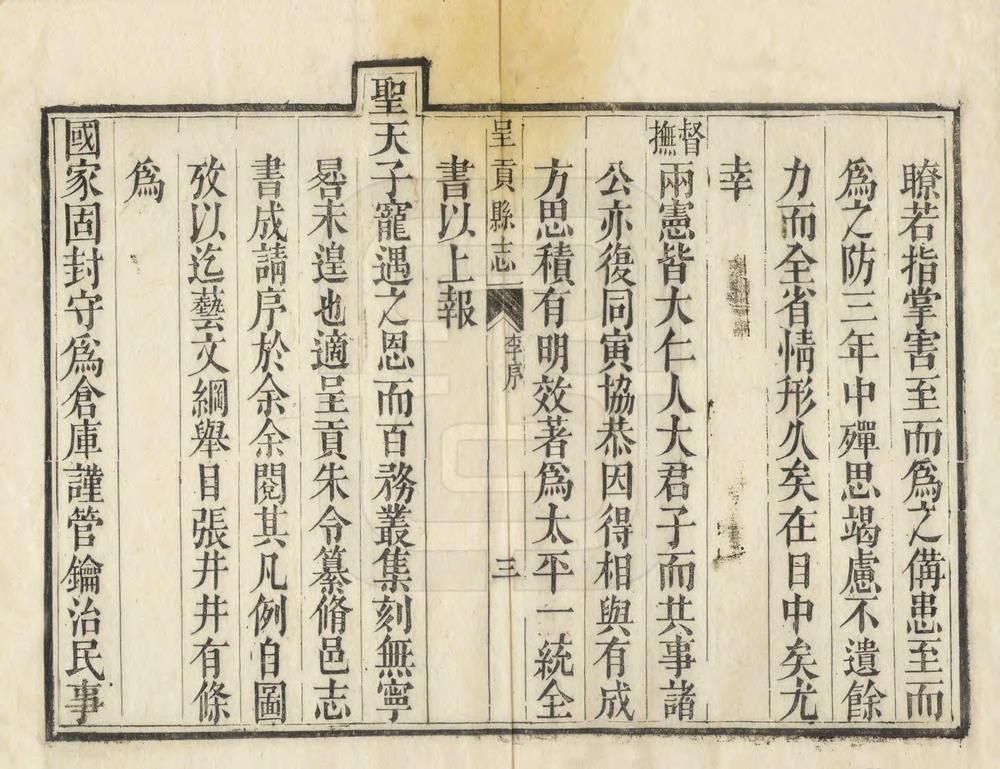 瞭若指掌害至而爲之備患至而
爲之防三年中殫思竭慮不遺餘
力而全省情形久矣在目中矣尤
幸
督撫兩憲皆大仁人大君子而共事諸
公亦復同寅協恭因得相與有成
方思積有明效著爲太平一統全
書以上報
呈貢縣志
李序
三
聖天子寵遇之恩而百務叢集刻無寧
晷未遑也適呈貢朱令纂脩邑志
書成請序於余余閱其凡例自圖
攷以迄藝文綱舉目張井井有條
爲
國家固封守爲倉庫謹管鑰治民事